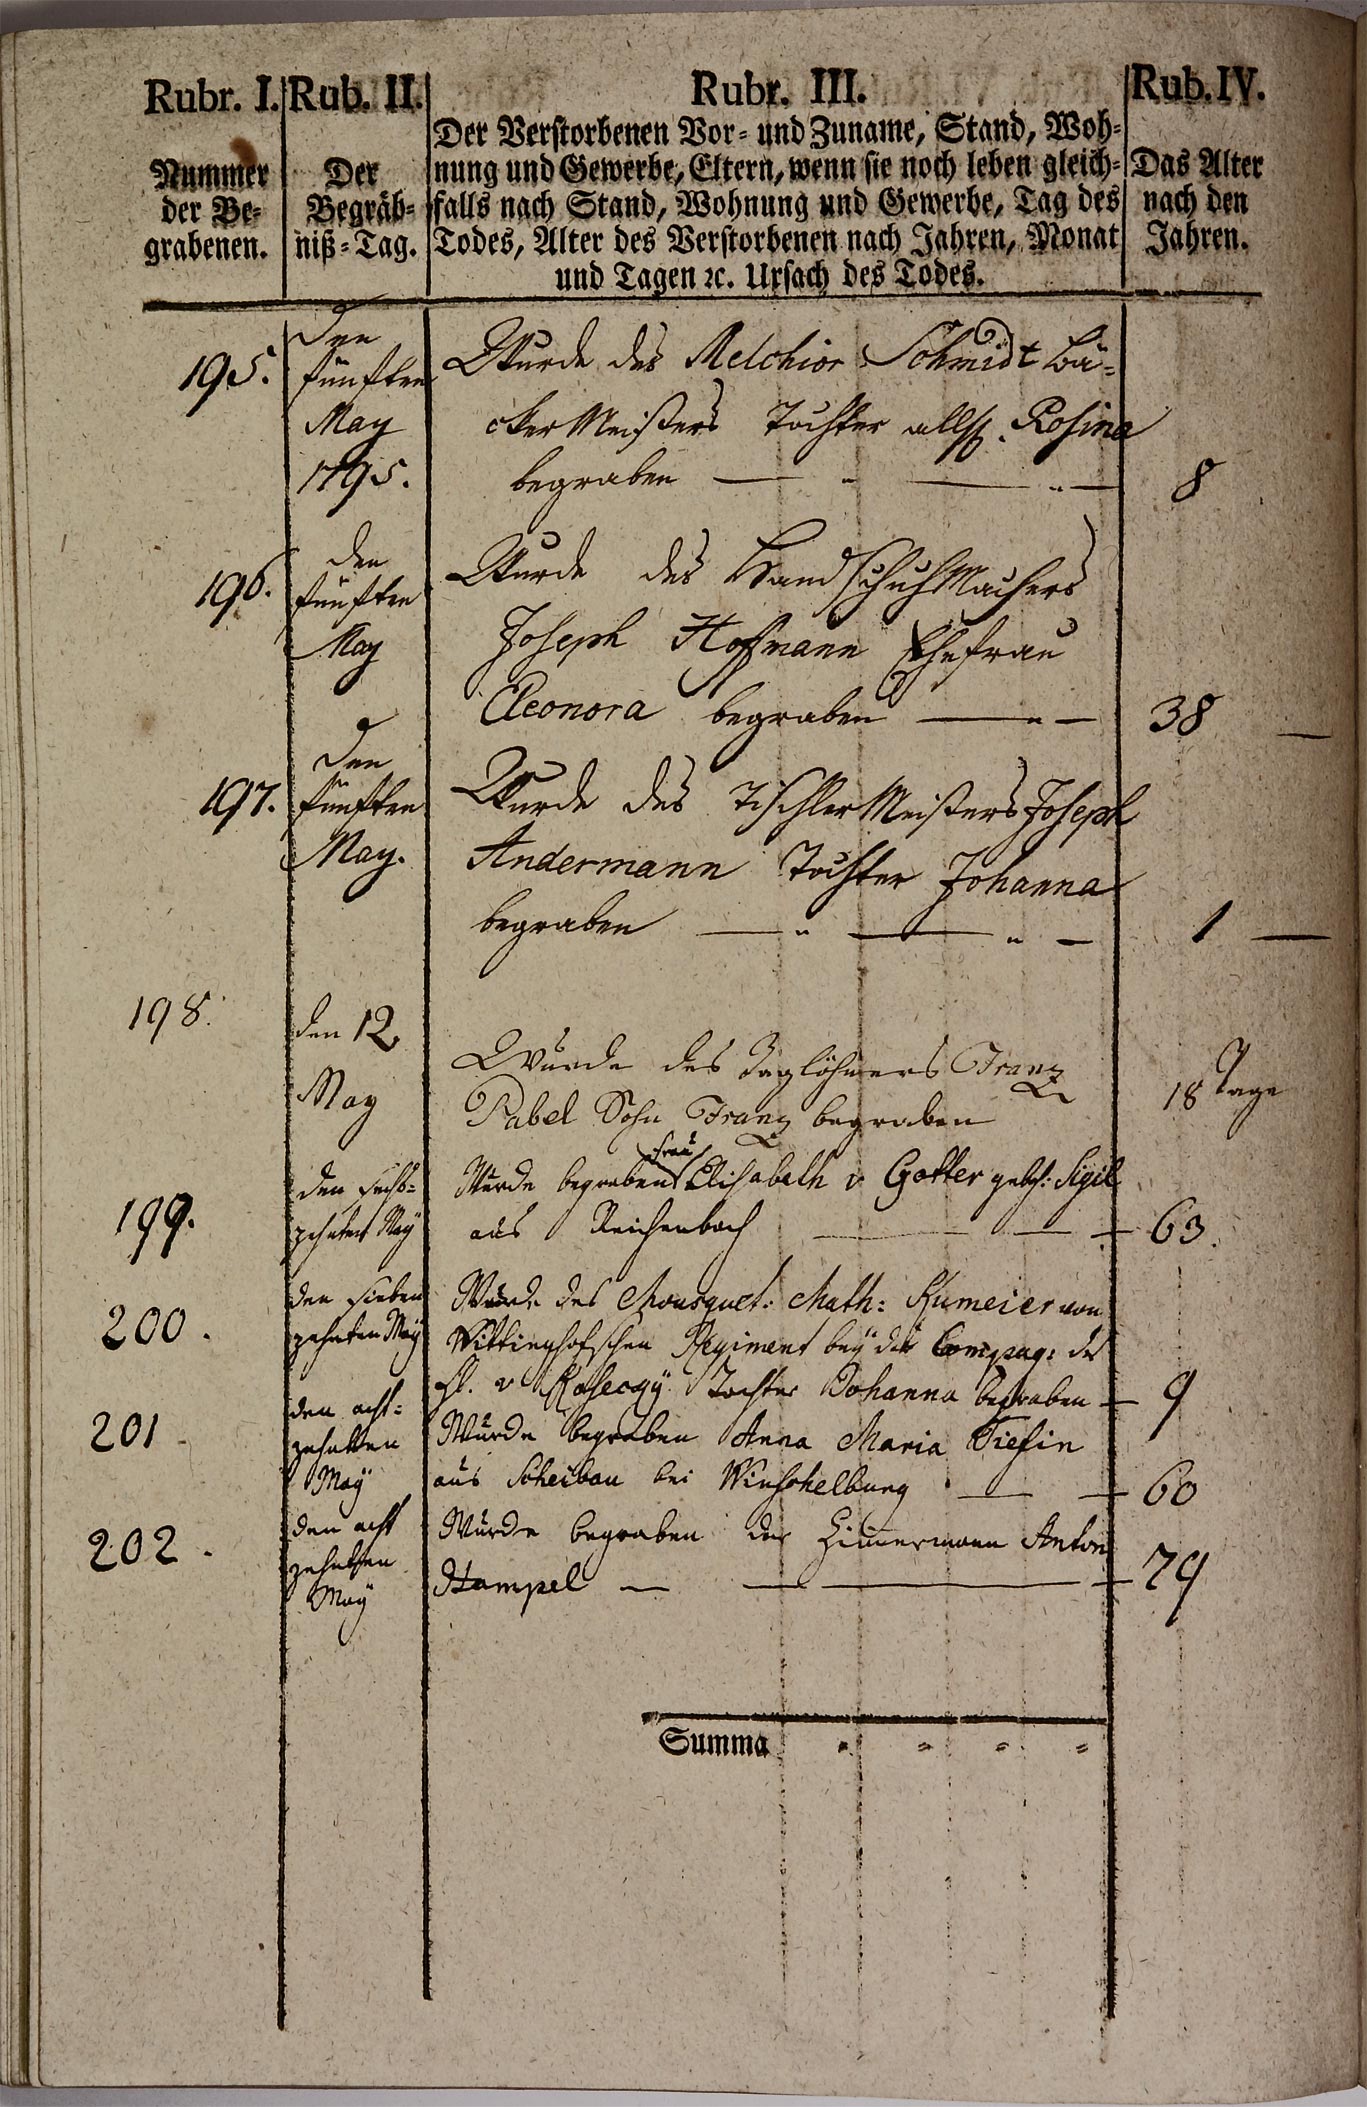 Rubr. I. Rub. II. Rubr. III. Rub. IV.
Nummer der Be-
grabenen.
Der
Begräb-
niß-Tag.
Der Verstorbenen Vor- und Zuname, Stand, Woh-
nung und Gewerbe, Eltern, wenn sie noch leben gleich-
falls nach Stand, Wohnung und Gewerbe, Tag des
Todes, Alter des Verstorbenen nach Jahren, Monat
und Tagen ꝛc. Ursach des Todes.
Das Alter
nach den
Jahren.
195.
Den
fünften
May
1795.
Wurde des Melchior Schmidt bä-
cker Meisters Tochter allh. Rosina
begraben
8
196.
den
fünften
May
Wurde des Handschuh Machers
Joseph Hoffmann Ehefrau
Eleonora begraben
38
197.
Den
fünften
May.
Wurde des Tischler Meisters Joseph
Andermann Tochter Johanna
begraben
1
198.
den 12
May
Wurde des Taglöhners Franz
Pabel Sohn Franz begraben
18 Tage
199.
den sechs-
zehnten May
Wurde begraben Frau Elisabeth v Gotter gebh: Sigil
aus Reichenbach
63.
200.
den sieben
zehnten May
Wurde des Mousquet: Math: Kumeier von
Vittinghofschen Regiment bey der Compag: des
H. v Tochter Johanna begraben
9
201
den acht-
zehnten
May
Wurde begraben Anna Maria Tiefin
aus Scheibau bei
60
202.
den acht
zehnten
May
Wurde begraben der Zimmermann Anton
Hampel
79
Summa